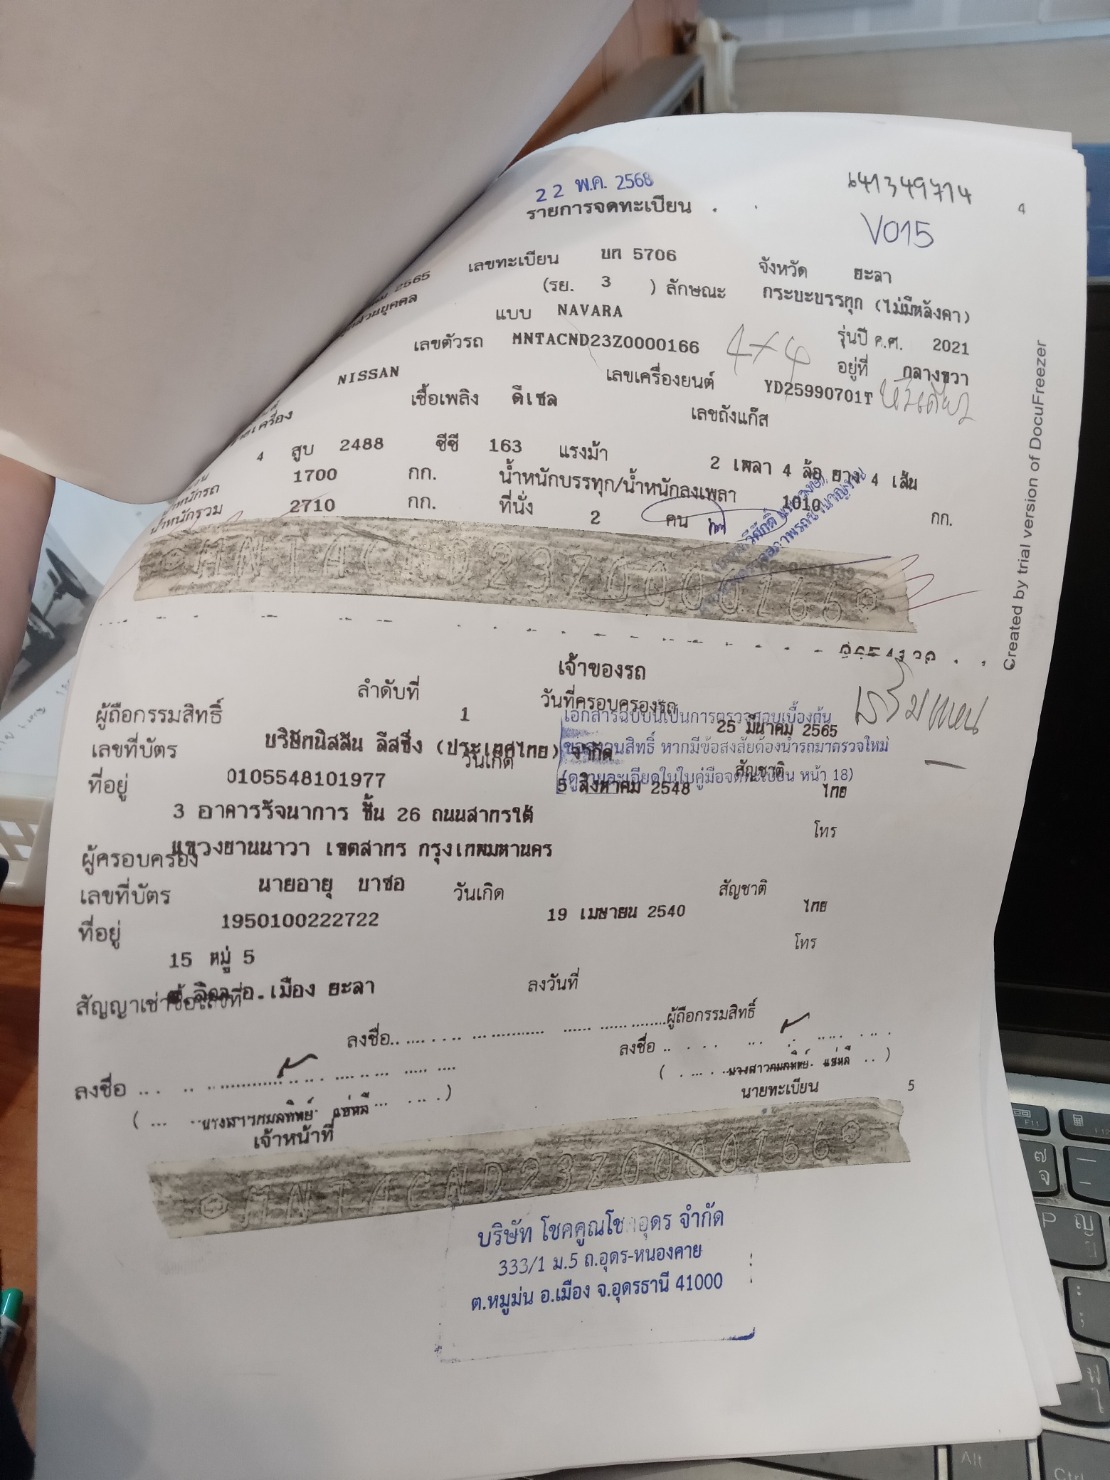 22 พ.ค. 2568
641349714
4
รายการจดทะเบียน
V015
2565
เลขทะเบียน บท 5706 จังหวัด ยะลา
(รย. 3 ) ลักษณะ กระบะบรรทุก (ไม่มีหลังคา)
แบบ NAVARA รุ่นปี ค.ศ. 2021
เลขตัวรถ MNTACND23Z0000166 4x4 อยู่ที่ กลางขวา
NISSAN เลขเครื่องยนต์ YD25990701T
เชื้อเพลิง ดีเซล เลขถังแก๊ส
4 สูบ 2488 ซีซี 163 แรงม้า 2 เพลา 4 ล้อ ยาง 4 เส้น
น้ำหนักรถ 1700 กก. น้ำหนักบรรทุก/น้ำหนักลงเพลา 1010 กก.
น้ำหนักรวม 2710 กก. ที่นั่ง 2 คน
MNTACND23Z0000166
เจ้าของรถ
ลำดับที่ 1 วันที่ครอบครองรถ 25 มีนาคม 2565
ผู้ถือกรรมสิทธิ์ บริษัทนิสสัน ลีสซิ่ง (ประเทศไทย) จำกัด
เอกสารฉบับนี้เป็นการตรวจสอบเบื้องต้น
หากมีข้อสงสัยต้องนำรถมาตรวจใหม่
หน้า 18)
เลขที่บัตร 0105548101977 วันเกิด 5 สิงหาคม 2548 สัญชาติ ไทย
ที่อยู่ 3 อาคารรัจนาการ ชั้น 26 ถนนสาทรใต้
แขวงยานนาวา เขตสาทร กรุงเทพมหานคร โทร
ผู้ครอบครอง นายอายุ บาซอ
เลขที่บัตร 1950100222722 วันเกิด 19 เมษายน 2540 สัญชาติ ไทย
ที่อยู่ 15 หมู่ 5 โทร
อ.เมือง ยะลา
สัญญาเช่าซื้อเลขที่ ลงวันที่
ลงชื่อ ผู้ถือกรรมสิทธิ์
ลงชื่อ ลงชื่อ
เจ้าหน้าที่ นายทะเบียน
5
MNTACND23Z0000166
บริษัท โชคคูณโชคอุดร จำกัด
333/1 ม.5 ถ.อุดร-หนองคาย
ต.หมูม่น อ.เมือง จ.อุดรธานี 41000
Created by trial version of DocuFreezer